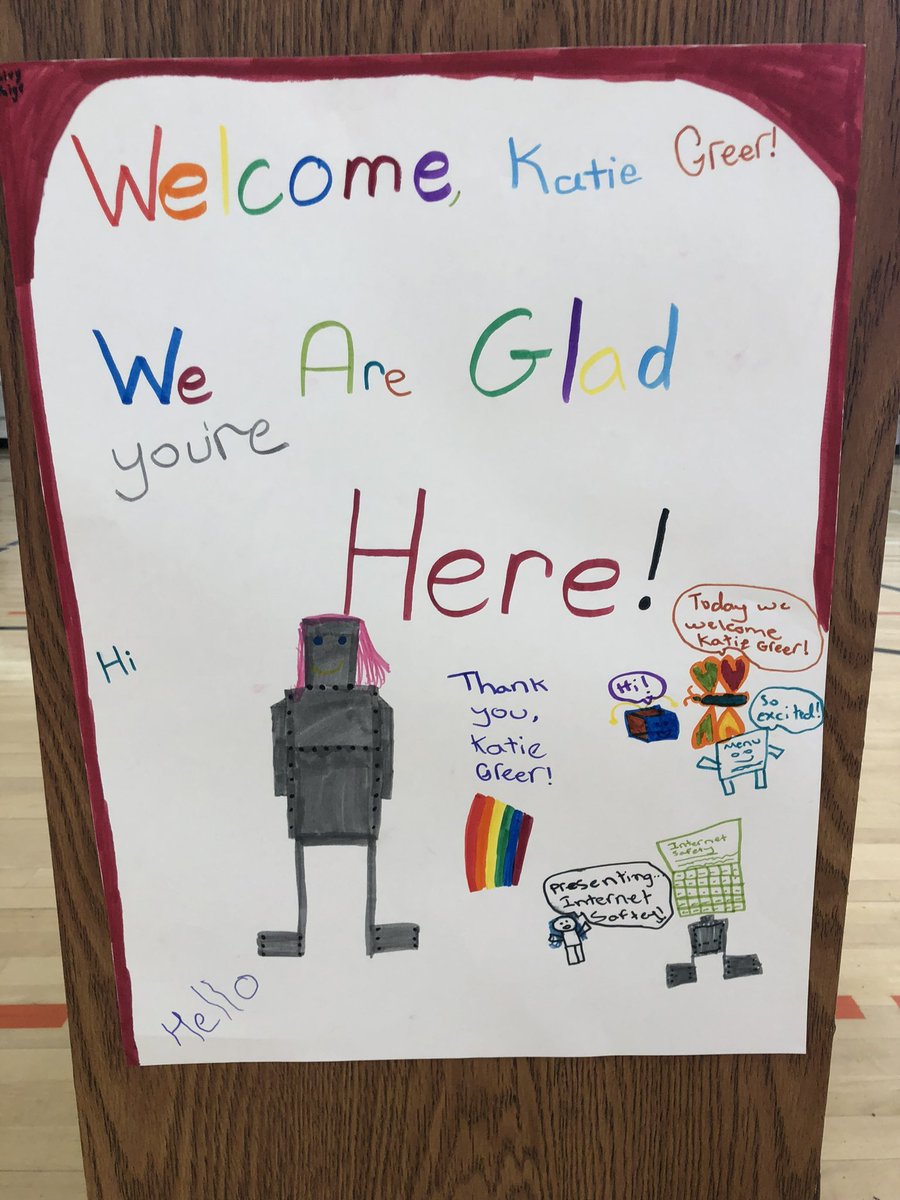 Welcome, Katie Greer!
We Are Glad
you're
Here!
Hi
Thank
you,
Katie
Greer!
Today we
welcome
Katie Greer!
Hi!
So
excited!
Menu
Internet
Safety
presenting...
Internet
Saftey!
Hello